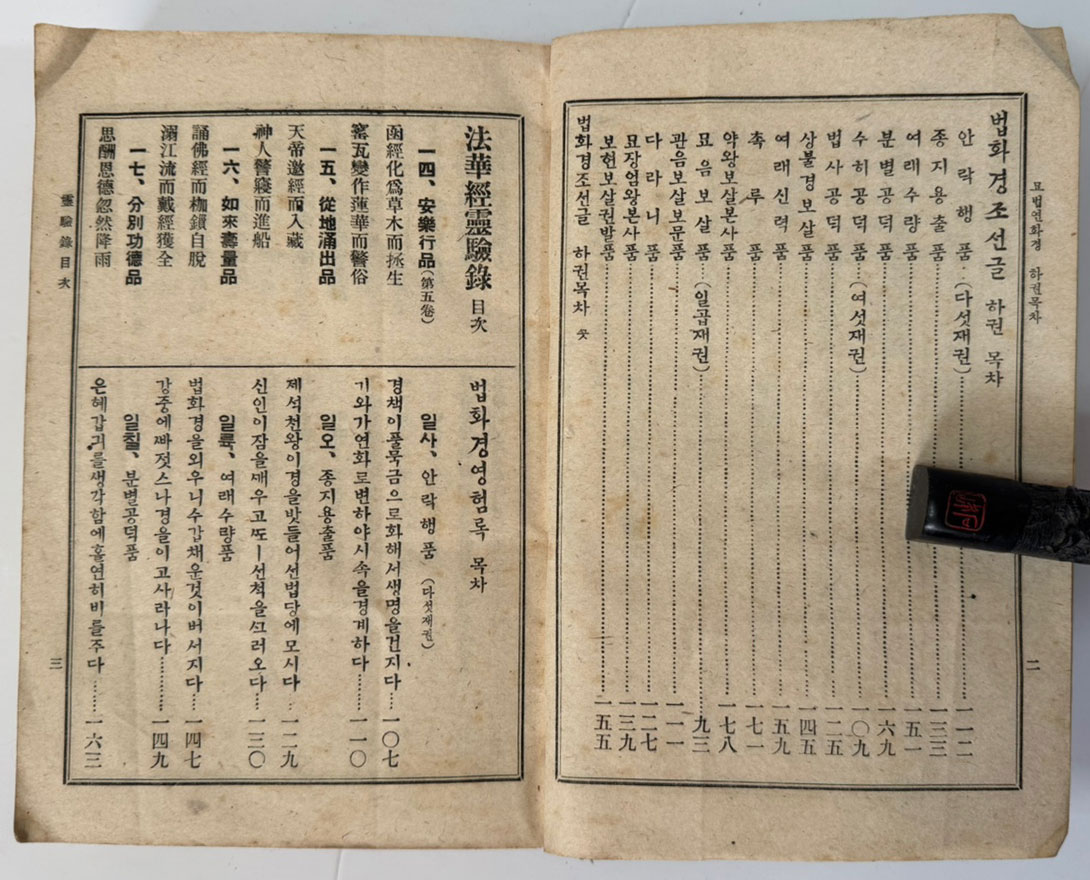 묘법연화경 하권목차
二
법화경조선글 하권 목차
안락행품(다섯재권)……一一二
종지용출품……一三三
여래수량품……一五一
분별공덕품……一六九
수희공덕품(여섯재권)……一〇九
법사공덕품……一二五
상불경보살품……一四五
여래신력품……一五九
촉루품……一七一
약왕보살본사품……一七八
묘음보살품(일곱재권)……九三
관음보살보문품……一一一
다라니품……一二七
묘장엄왕본사품……一三九
보현보살권발품……一五五
법화경조선글 하권목차 끗
法華經靈驗錄 目次
一四、安樂行品(第五卷)
函經化爲草木而拯生
窰瓦變作蓮華而警俗
一五、從地涌出品
天帝邀經而入藏
神人警寢而進船
一六、如來壽量品
誦佛經而枷鎖自脫
溺江流而戴經獲全
一七、分別功德品
思酬恩德忽然降雨
법화경영험록 목차
일사、안락행품 (다섯재권)
경책이풀묵금으로화해서생명을건지다……一〇七
기와가연화로변하야시속을경계하다……一一〇
일오、종지용출품
제석천왕이경을밧들어선법당에모시다……一二九
신인이잠을깨우고또ㅣ선척을ᄭᅳ러오다……一三〇
일륙、여래수량품
법화경을외우니수갑채운것이버서지다……一四七
강중에빠젓스나경을이고사라나다……一四九
일칠、분별공덕품
은혜갑기를생각함에홀연히비를주다……一六三
靈驗錄目次
三